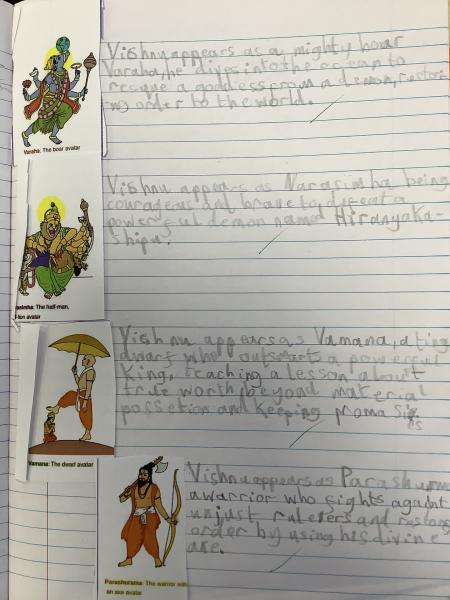 Vishnu appears as a mighty boar
Varaha, he dives into the ocean to
rescue a goddess from a demon, restori
ng order to the world.
Varaha: The boar avatar
Vishnu appears as Narasimha being
courageous and brave to defeat a
powerful demon named Hiranyaka-
shipu.
asimha: The half-man,
-lion avatar
Vishnu appears as Vamana, a ting
dwarf who outsmarts a powerful
King, teaching a lesson about
true worth beyond material
possetion and keeping promasis
es
Vamana: The dwarf avatar
Vishnu appears as Parashuram
a warrior who fights against
unjust rulers and
order by using his divine
axe.
Parashurama: The warrior with
an axe avatar